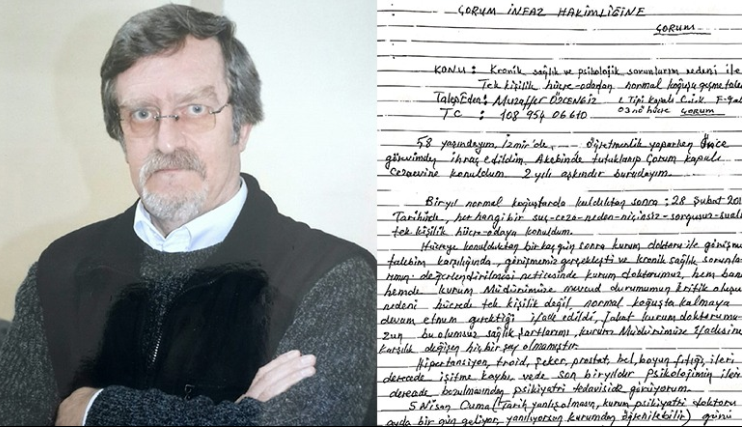 ÇORUM İNFAZ HAKİMLİĞİNE
ÇORUM
KONU : Kronik sağlık ve psikolojik sorunlarım nedeni ile
Tek kişilik hücre-odadan normal koğuşa geçme
Talep Eden: Muzaffer ÖZCENGİZ L Tipi Kapalı C.i.k
TC : 108 954 06610 03 nö hücre ÇORUM
58 yaşındayım, İzmir'de, öğretmenlik yaparken önce
görevimden ihraç edildim. Akebinde tutuklanıp Çorum kapalı
Cezaevine konuldum. 2 yılı aşkındır buradayım.
Bir yıl normal koğuşlarda kaldıktan sonra : 28 Şubat
Tarihinde, her hangi bir suç-ceza-neden-niçinsiz-sorgusuz-sual
tek kişilik hücre-odaya konuldum.
Hücreye konulduktan birkaç gün sonra kurum doktoru ile görüşme
talebim karşılığında, görüşmemiz gerçekleşti ve kronik sağlık sorunla
rımın değerlendirilmesi neticesinde kurum doktorumuz, hem bana
hemde kurum Müdürümüze mevcud durumumun kritik
nedeni hücrede tek kişilik değil normal koğuşta kalmaya
devam etmem gerektiği ifade edildi, fakat kurum doktorumu
zun bu olumsuz sağlık şartlarımı, kurum Müdürümüze ifadesine
karşılık değişen hiçbir şey olmamıştır.
Hipertansiyon, troid, şeker, prostat, bel, boyun fıtığı, ileri
derecede işitme kaybı, vede son bir yıldır psikolojimin ileri
derecede bozulmasından psikiyatri tedaviside görüyorum.
5 Nisan Cuma (Tarih yanlış olmasın, kurum psikiyatri doktoru
ayda bir gün geliyor, yanılıyorsam kurumdan öğrenilebilir) günü